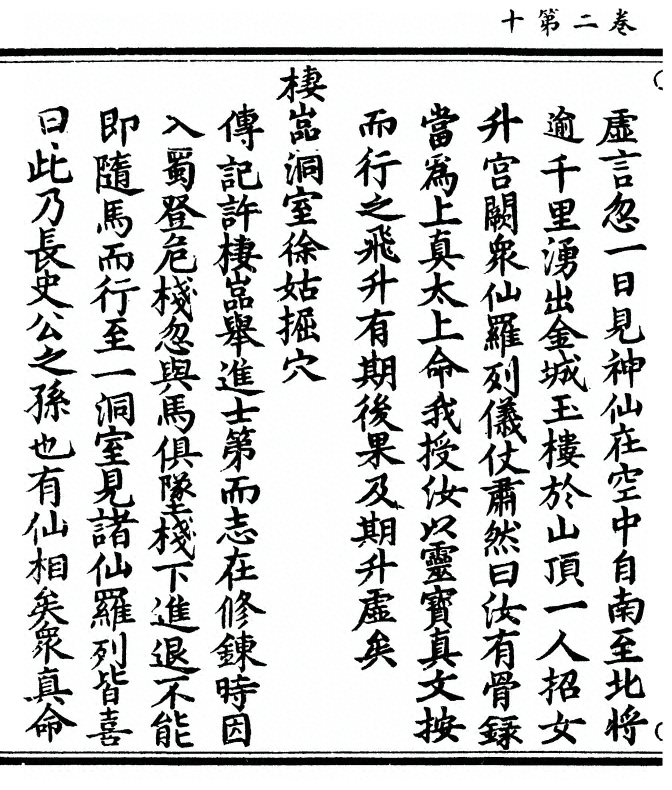 卷二第十
虛言忽一日見神仙在空中自南至北將
逾千里湧出金城玉樓於山頂一人招女
升宮闕衆仙羅列儀仗肅然曰汝有骨錄
當爲上真太上命我授汝以靈寶真文按
而行之飛升有期後果及期升虛矣
棲嵓洞室徐姑掘穴
傳記許棲嵓舉進士第而志在修鍊時因
入蜀登危棧忽與馬俱墜棧下進退不能
即隨馬而行至一洞室見諸仙羅列皆喜
曰此乃長史公之孫也有仙相矣衆真命